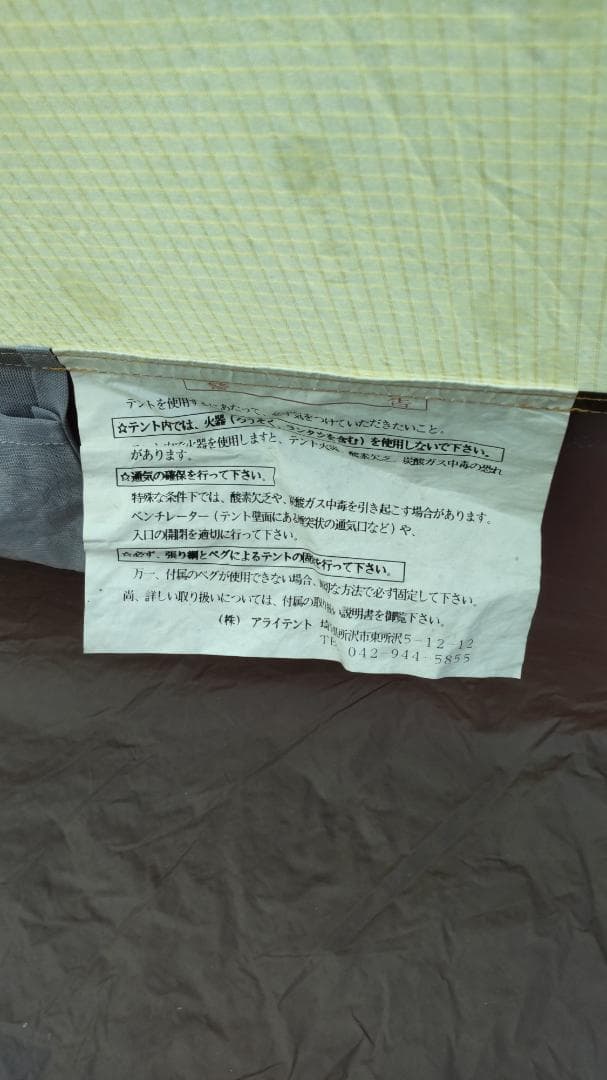 警 告
テントを使用するにあたって、必ず気をつけていただきたいこと。
☆テント内では、火器(ろうそく、ランタンを含む)を使用しないで下さい。
火器を使用しますと、テント火災、酸素欠乏、炭酸ガス中毒の恐れ
があります。
☆通気の確保を行って下さい。
特殊な条件下では、酸素欠乏や、炭酸ガス中毒を引き起こす場合があります。
ベンチレーター(テント壁面にある煙突状の通気口など)や、
入口の開閉を適切に行って下さい。
☆必ず、張り綱とペグによるテントの固定を行って下さい。
万一、付属のペグが使用できない場合、適切な方法で必ず固定して下さい。
尚、詳しい取り扱いについては、付属の取り扱い説明書を御覧下さい。
(株) アライテント 埼玉県所沢市東所沢5-12-12
TEL 042-944-5855